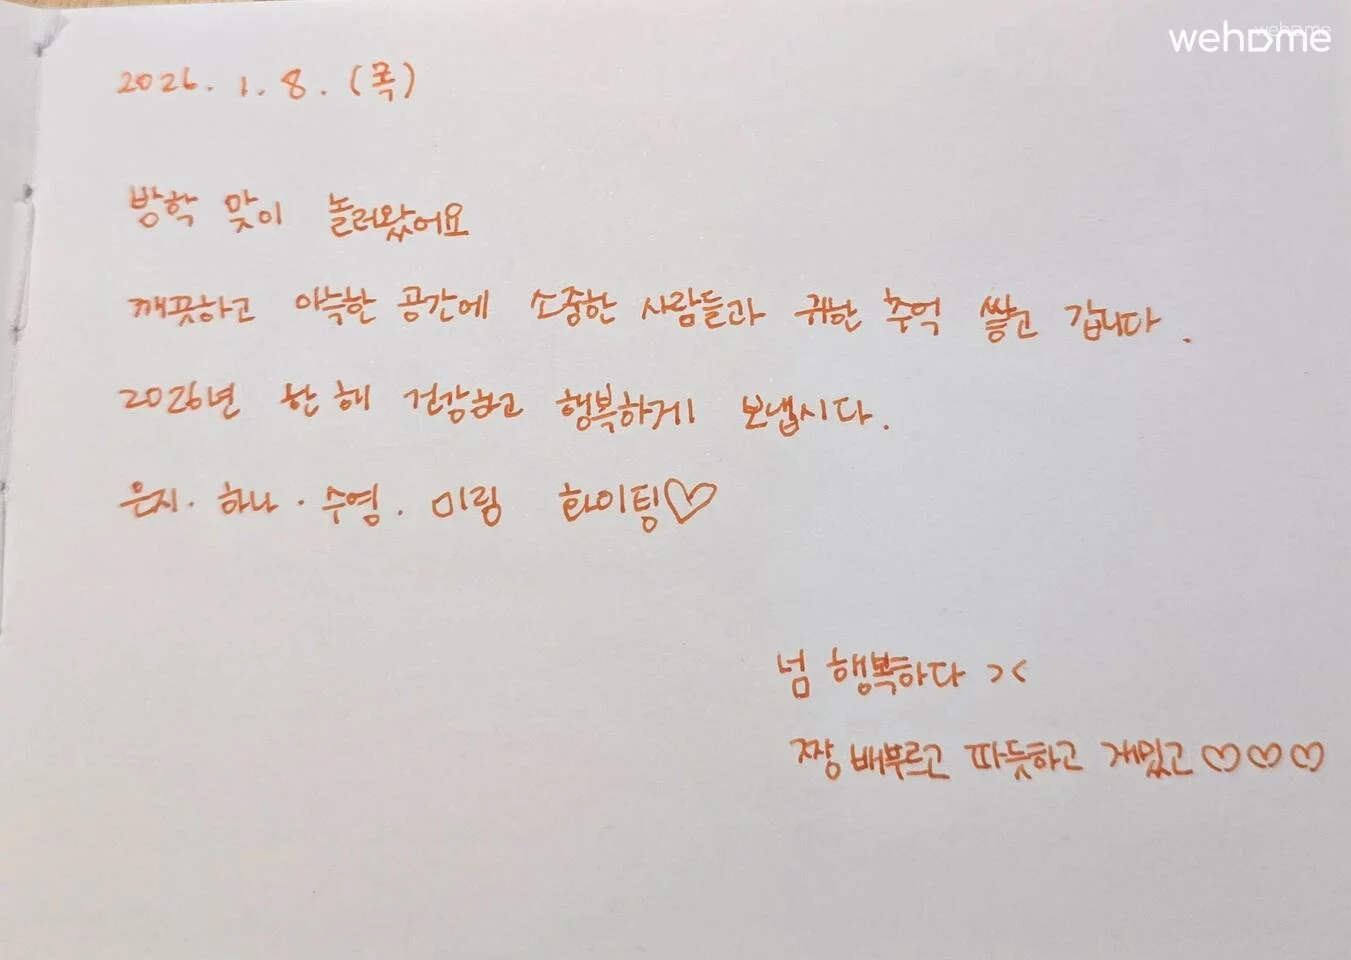 wehome
2026. 1. 8. (목)
방학 맞이 놀러왔어요
깨끗하고 아늑한 공간에 소중한 사람들과 귀한 추억 쌓고 갑니다.
2026년 한 해 건강하고 행복하게 보냅시다.
은지. 하나. 수영. 미링 화이팅♡
넘 행복하다 ><
짱 배부르고 따듯하고 재밌고 ♡♡♡